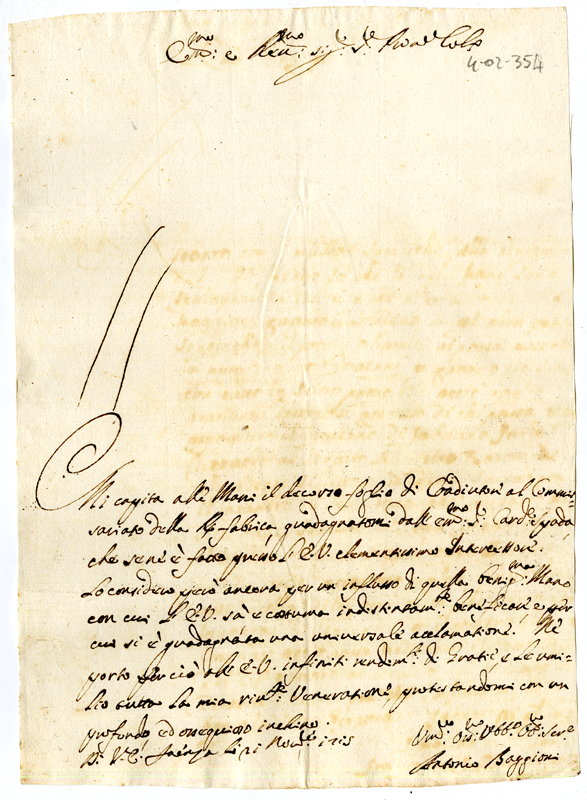 Em:mo e Reu:mo sig.e
4-02-354
Mi capita alle Mani il decorso foglio di Coadiutore al Commis=
sariato della R. fabrica guadagnatomi dall' em:mo S. Card.
che sene è fatto presso l' E.V. clementissimo Intercessore.
Lo considero però ancora per un influsso di quella benig:ma Mano
con cui l' E.V. sà e costuma indistintam:te beneficare e per
cui si è guadagnata una universale acclamatione. Ne
porto perciò all' E.V. infiniti rendim.ti di Gratie e le umi=
lio tutta la mia riu:te Veneratione, protestandomi con un
profondo, ed ossequioso inchino.
Di V.E. Faenza li 21 Nou:bre
Antonio Baggioni